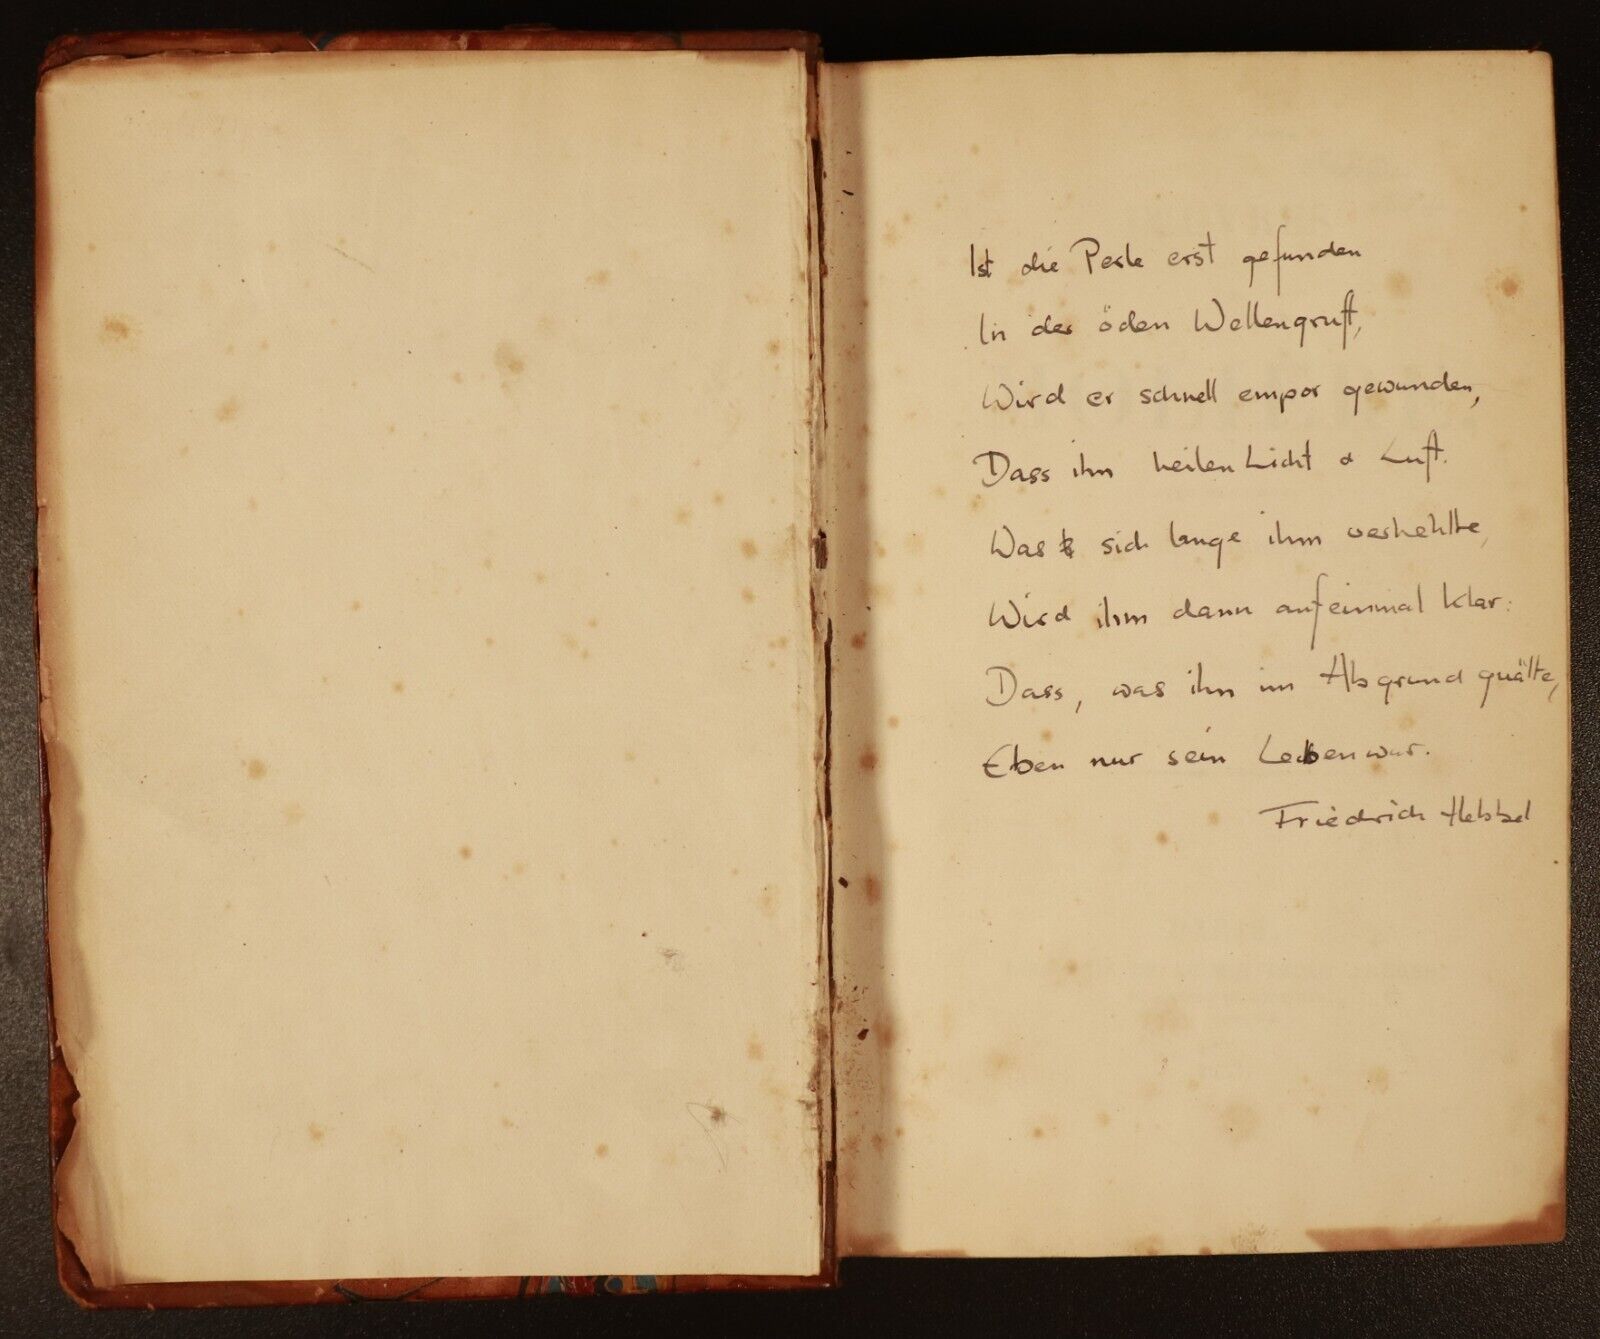 Ist die Perle erst gefunden
In der öden Wellengruft,
Wird er schnell empor gewunden,
Dass ihn heilen Licht & Luft.
Was sich lange ihm verhehlte,
Wird ihm dann aufeinmal klar:
Dass, was ihn im Abgrund quälte,
Eben nur sein Leben war.
Friedrich Hebbel